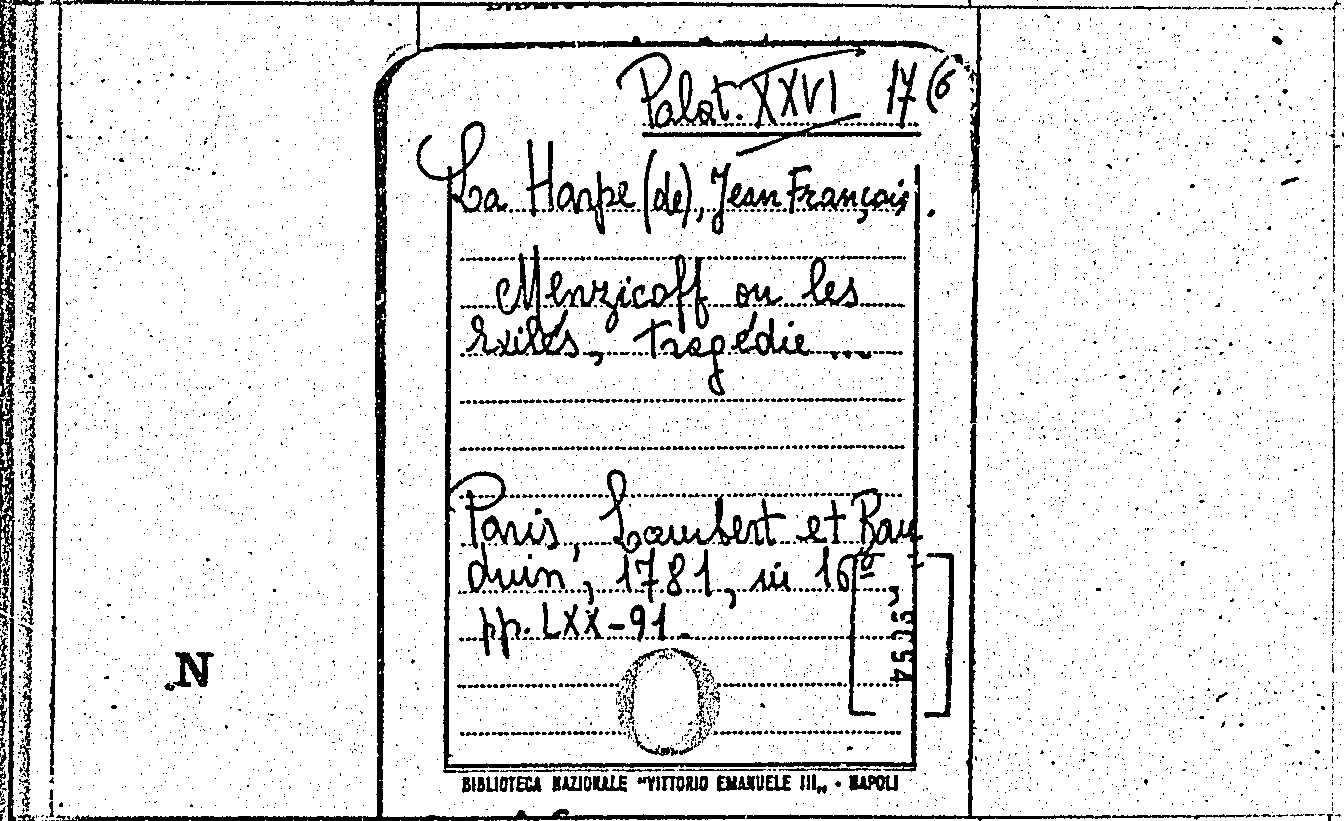 Palat. XXVI 17 (6
La Harpe (de), Jean François.
Menzicoff ou les
Exilés, tragédie ...
Paris, Lambert et Bau
duin, 1781, in 16º
pp. LXX-91.
N
BIBLIOTECA NAZIONALE "VITTORIO EMANUELE III„ - NAPOLI